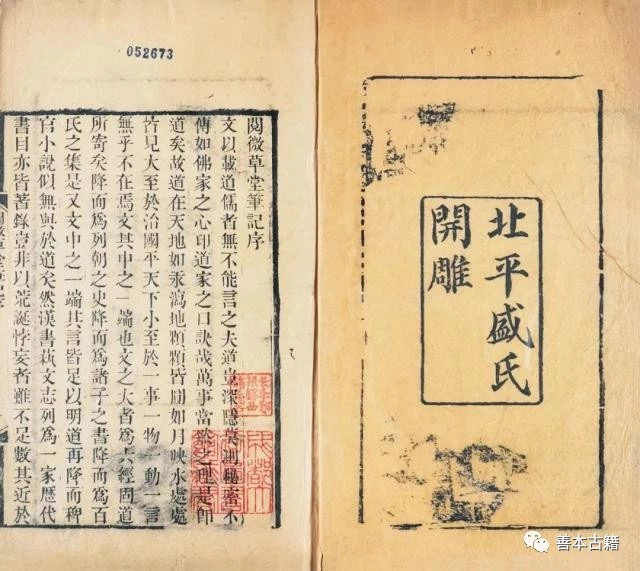 北平盛氏
開雕
052673
閱微草堂筆記序
文以載道儒者無不能言之夫道豈深隱莫測秘密不
傳如佛家之心印道家之口訣哉萬事當然之理是即
道矣故道在天地如汞瀉地顆顆皆圓如月映水處處
皆見大至於治國平天下小至於一事一物一動一言
無乎不在焉文其中之一端也文之大者爲六經固道
所寄矣降而爲列朝之史降而爲諸子之書降而爲百
氏之集是又文中之一端其言皆足以明道再降而稗
官小說似無與於道矣然漢書蓺文志列爲一家歷代
書目亦皆著錄豈非以荒誕悖妄者雖不足數其近於
善本古籍